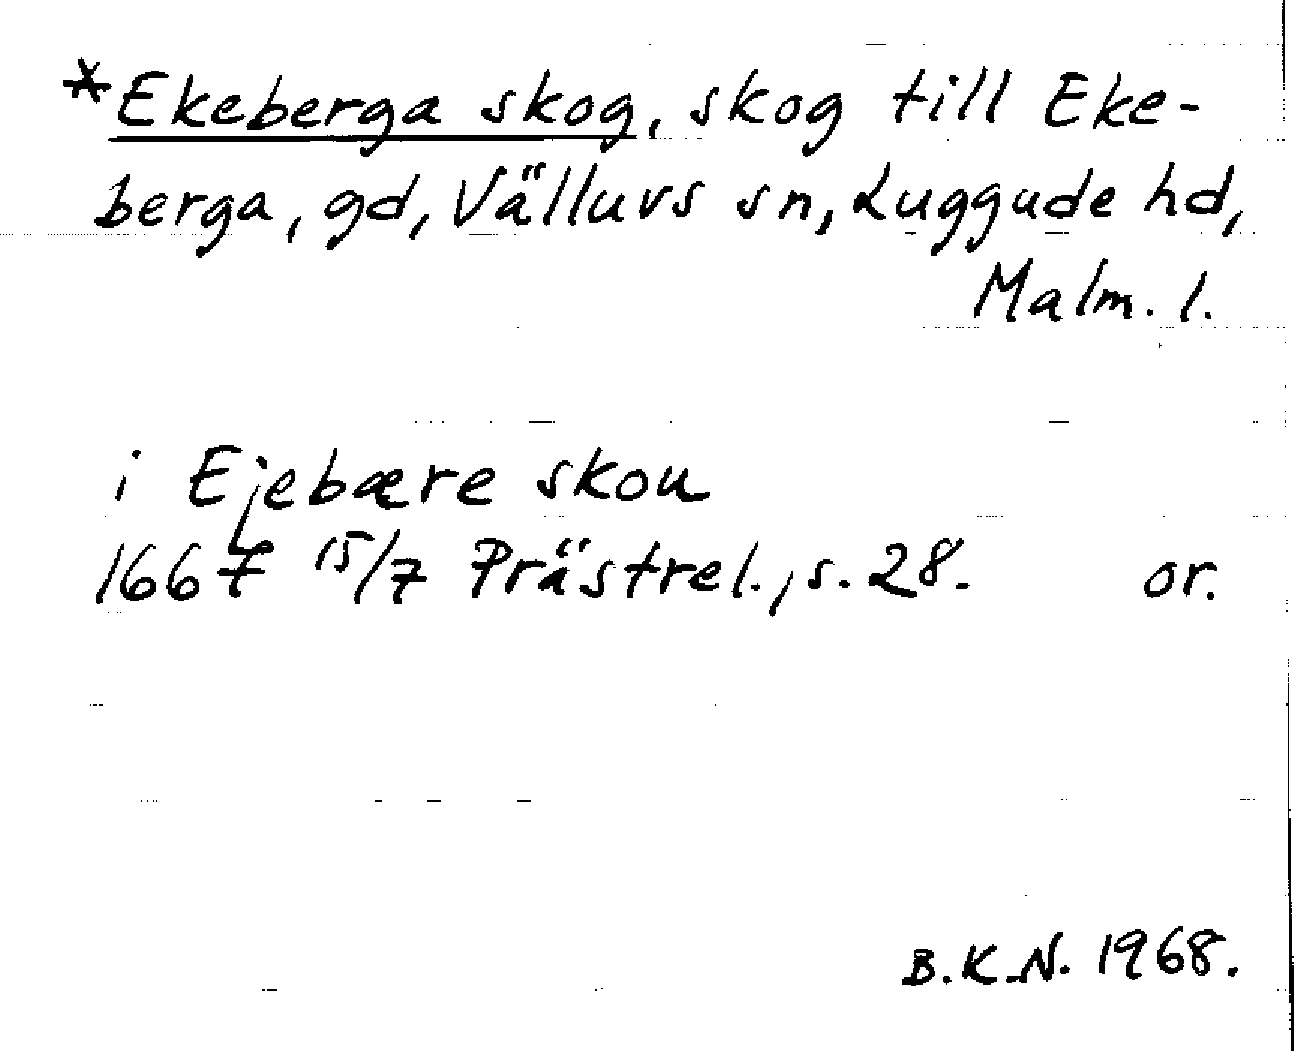 *Ekeberga skog, skog till Eke-
berga, gd, Välluvs sn, Luggude hd,
Malm. l.
i Ejebære skou
1667 15/7 Prästrel., s. 28. or.
B.K.N. 1968.